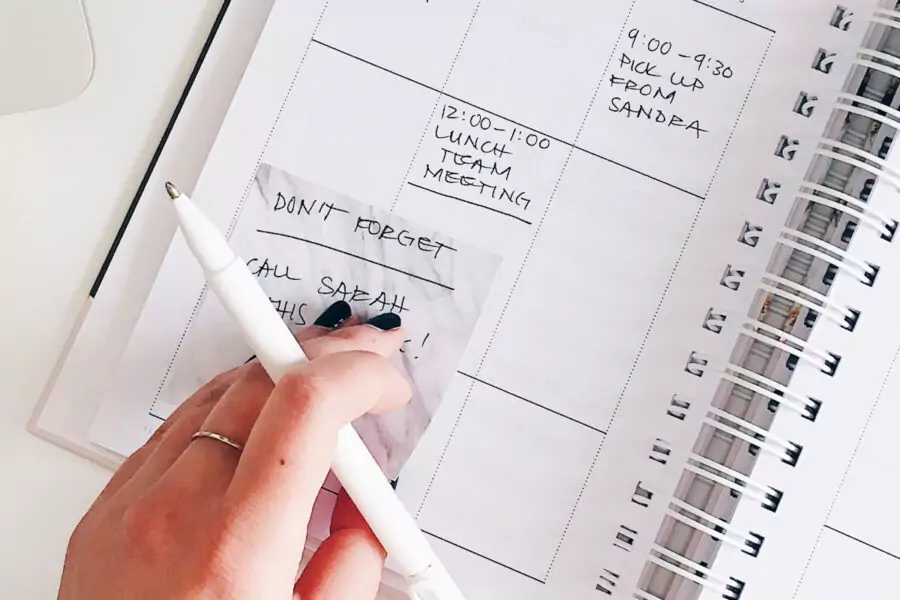 9:00 – 9:30
PICK UP
FROM
SANDRA
12:00 – 1:00
LUNCH
TEAM
MEETING
DON'T FORGET
CALL SARAH
THIS